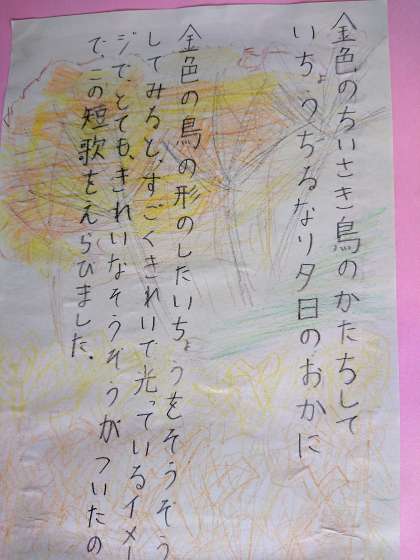 金色のちいさき鳥のかたちして
いちょうちるなり夕日のおかに
金色の鳥の形のしたいちょうをそうぞう
してみると、すごくきれいで光っているイメー
ジで、とても、きれいなそうぞうがついたの
で、この短歌をえらびました。